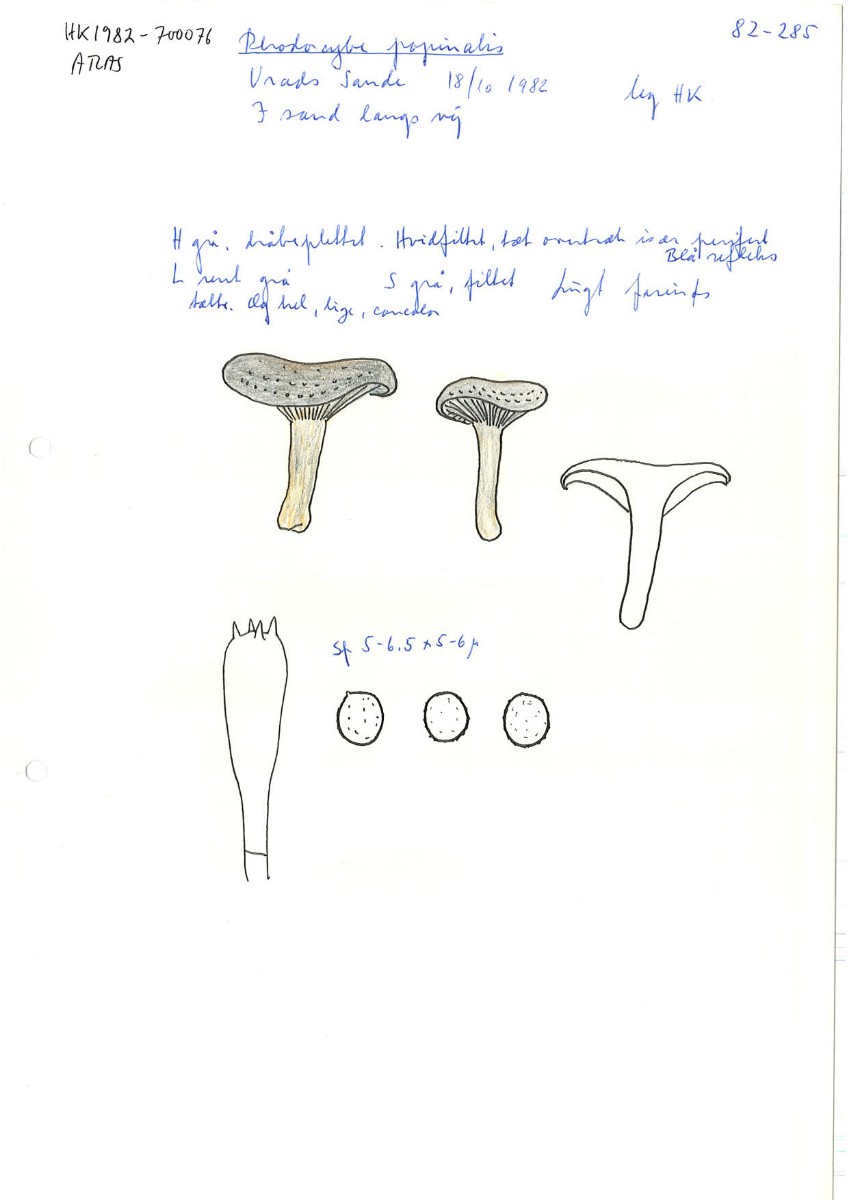 HK1982-700076
ATLAS
82-285
Rhodocybe popinalis
Vrads Sande 18/10 1982
leg HK
I sand langs vej
H grå, dråbeplettet. Hvidfiltet, tæt overtræk især perifert
Blå refleks
L rent grå S grå, filtet Lugt farinøs
tætte. Æg hel, lige, concolor
Sp 5-6.5 x 5-6 µ